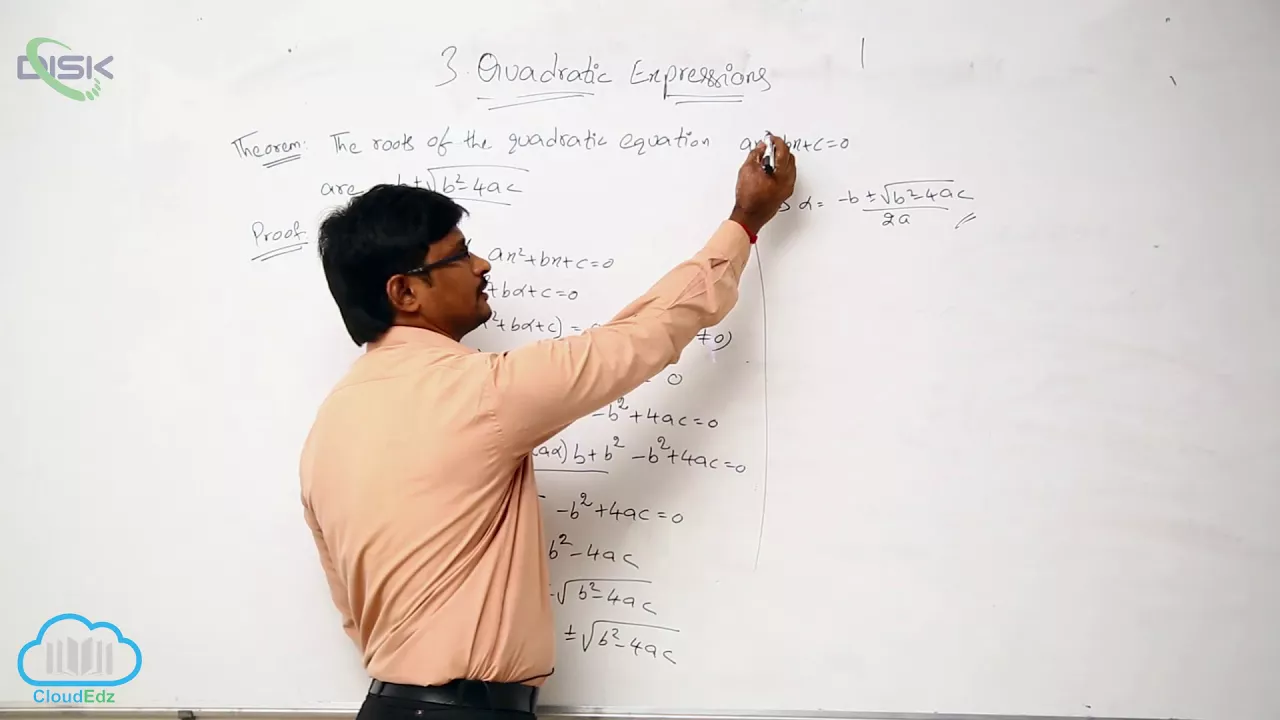 DISK
3. Quadratic Expressions
Theorem: The roots of the quadratic equation ax²+bx+c=0
are -b±√b²-4ac
α = -b±√b²-4ac
2a
Proof
ax²+bx+c=0
²+bα+c=0
²+bα+c) =
≠0)
= 0
-b²+4ac=0
aα) b+b² -b²+4ac=0
-b²+4ac=0
b²-4ac
√b²-4ac
±√b²-4ac
CloudEdz